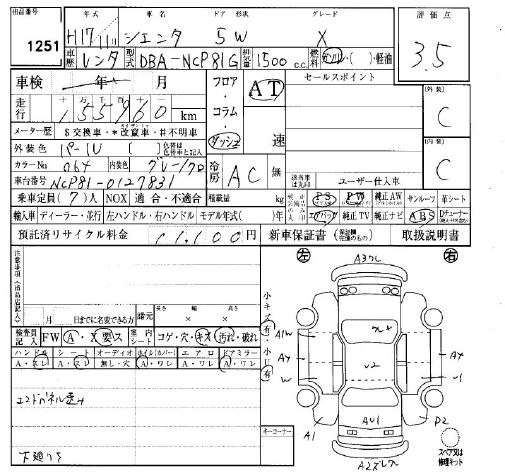 出品番号 1251
年式 H17/11 車名 シエンタ ドア 形状 5W グレード X
評価点 3.5
車歴 レンタ 型式 DBA-NCP81G 排気量 1500 c.c. 燃料 ガソリン・( )・軽油
車検 年 月
フロア・コラム・ダッシュ AT 速
セールスポイント
走行 155960 km
(外装) C
(内装) C
メーター歴 $交換車・*改竄車・#不明車
外装色 パール ( )
カラーNo 064 内装色 グレー/クロ
車台番号 NCP81-0127831
冷房 AC 無
ユーザー仕入車
乗車定員 (7)人 NOX 適合・不適合 積載量 kg
PS PW 純正AW サンルーフ 革シート
輸入車 ディーラー・並行 左ハンドル・右ハンドル モデル年式( )年
エアバッグ 純正TV 純正ナビ ABS
預託済リサイクル料金 11,100円
新車保証書 取扱説明書
注意事項(出品店記入)
月 日までに名変できる方
諸元 長さ × 幅 × 高さ
検査員記入 FW A・X 要ス 室内シート コゲ・穴・キズ 汚れ・破れ
ハンドル シート オーディオ ホイル(カバー) エアロ ドアミラー
A・スレ A・スレ 無し・穴 A・ワレ A・ワレ A・ワレ
下廻りS
コーナー
左 右
A3
A1W
AY
W
A1
V2
AU1
AY
U1
P2
スペア又は修理キット